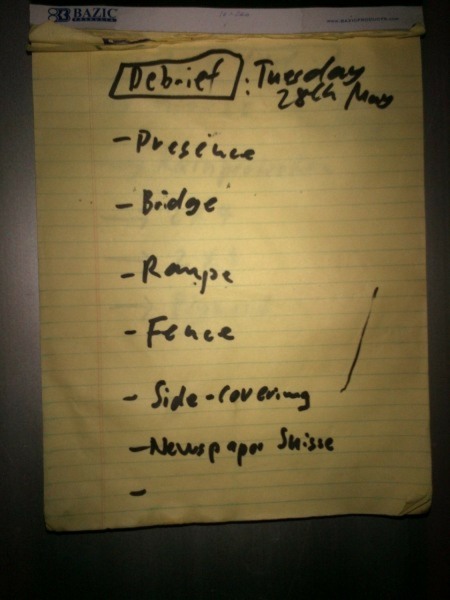 BAZIC
WWW.BAZICPRODUCTS.COM
Debrief : Tuesday
28th May
- Presence
- Bridge
- Rampe
- Fence
- Side-covering
- Newspaper Suisse
-